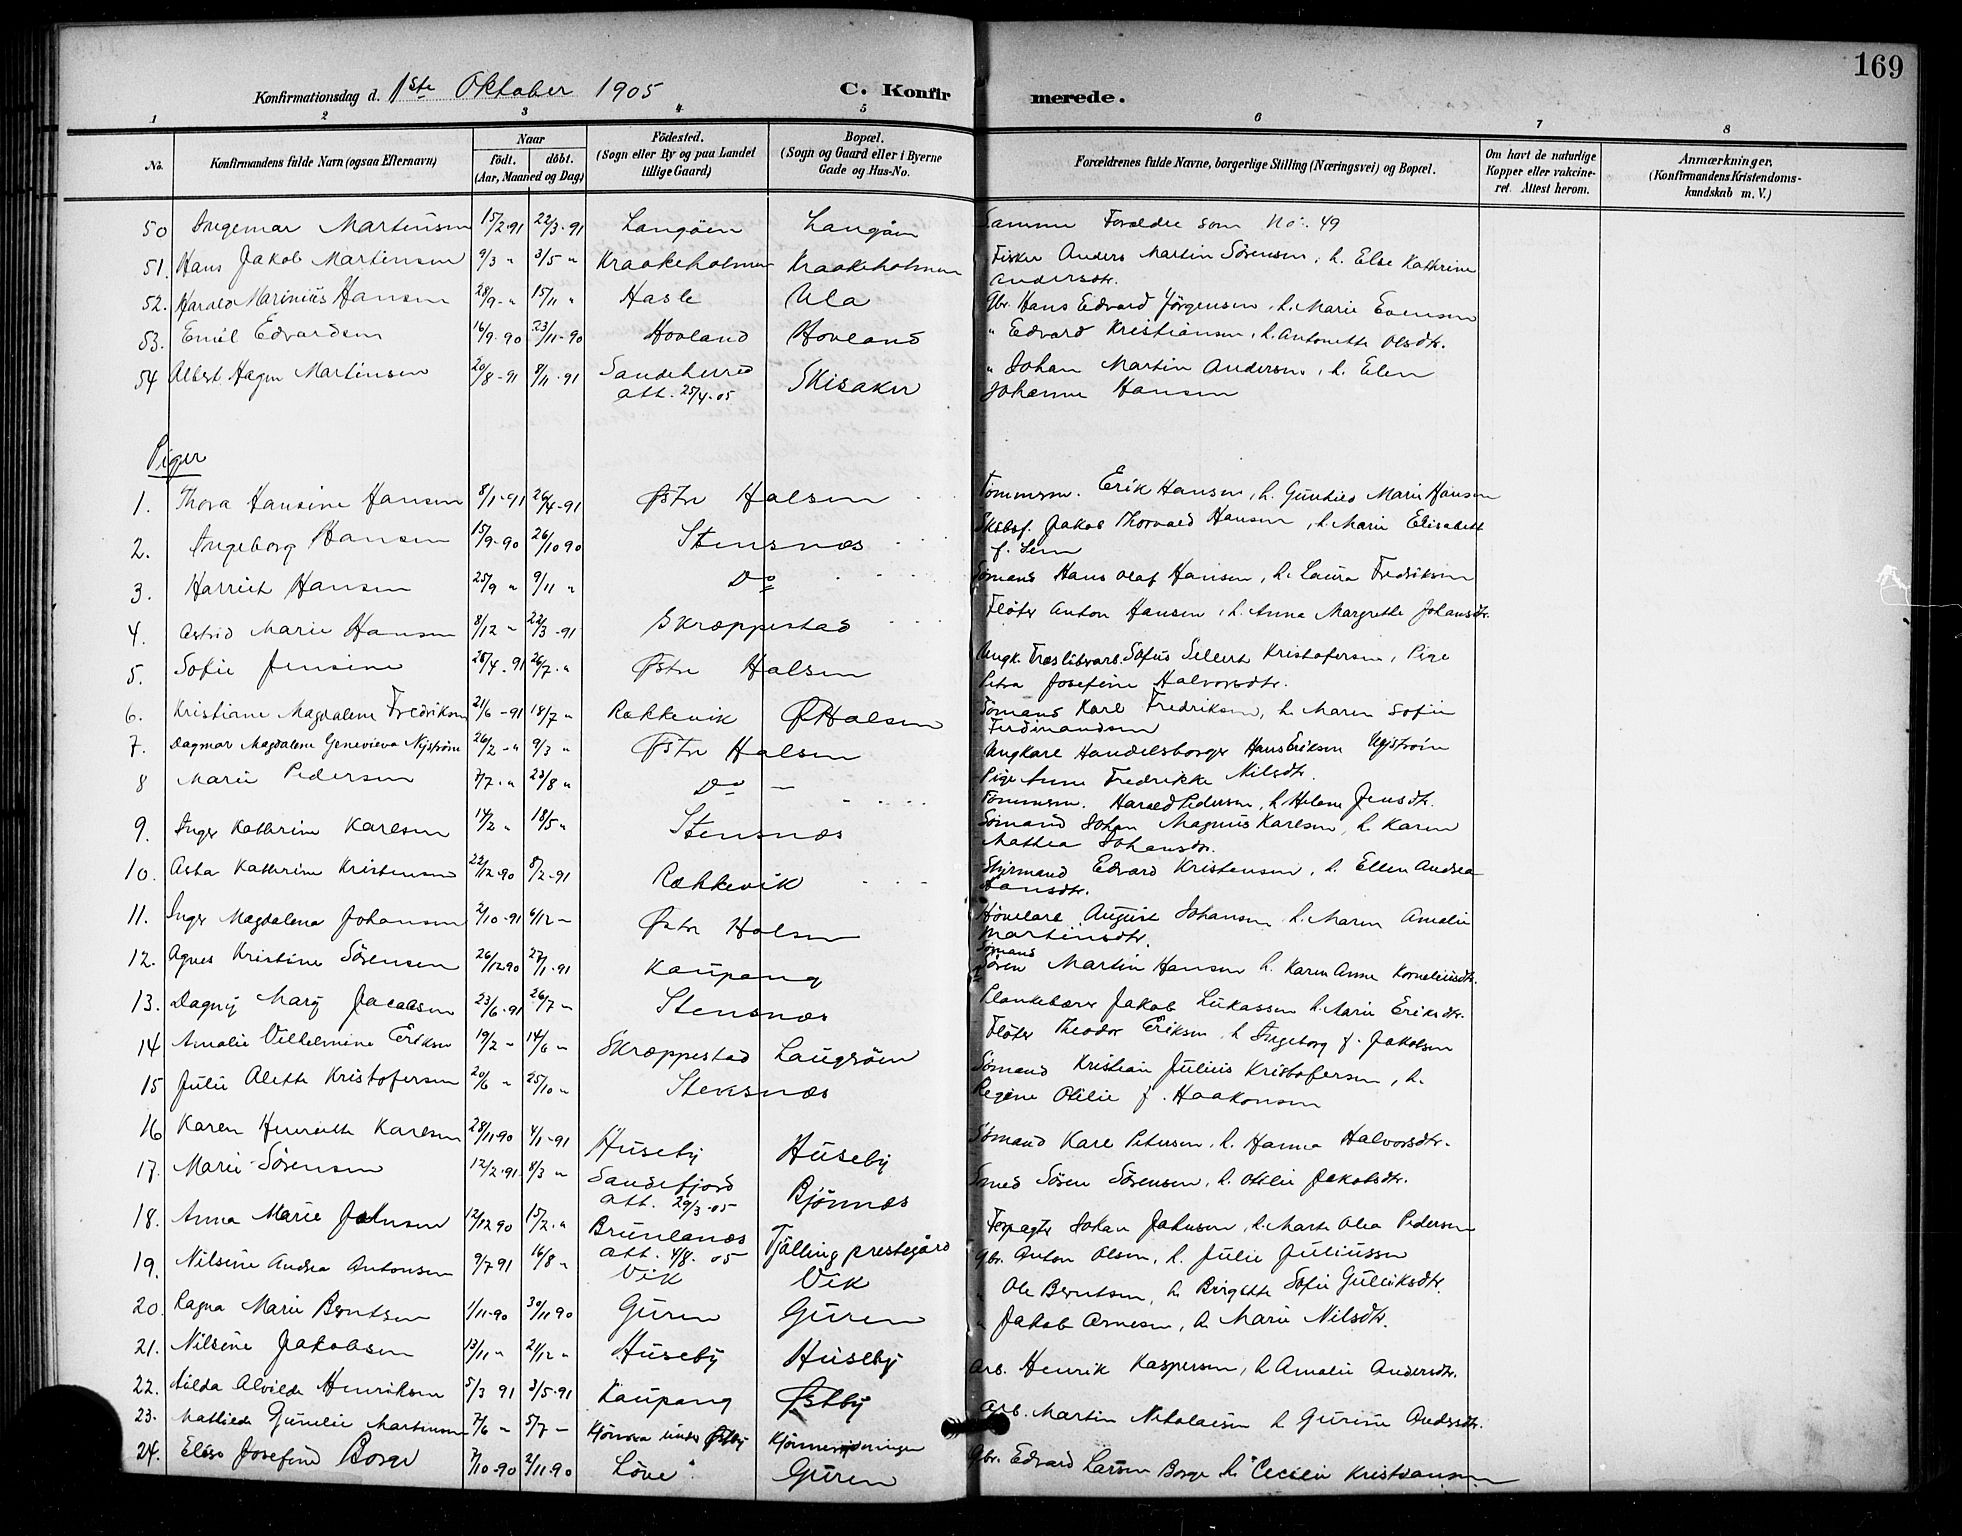 169
Konfirmationsdag d. 1ste Oktober 1905 C. Konfirmerede.
1 2 3 4 5 6 7 8
No. Konfirmandens fulde Navn (ogsaa Efternavn) Naar födt. döbt. (Aar, Maaned og Dag) Födested. (Sogn eller By og paa Landet tillige Gaard) Bopæl. (Sogn og Gaard eller i Byerne Gade og Hus-No. Forældrenes fulde Navne, borgerlige Stilling (Næringsvei) og Bopæl. Om havt de naturlige Kopper eller vakcineret. Attest herom. Anmærkninger. (Konfirmandens Kristendomskundskab m. V.)
50 Ingemar Martinsen 15/2-91 22/3-91 Langöen Langöen Samme Forældre som No. 49
51. Hans Jakob Martinsen 9/3 " 3/5 " Kraakeholmen Kraakeholmen Fisker Anders Martin Sörensen, h. Else Kathrine Andersdtr.
52. Harald Marinius Hansen 28/9 " 15/11 " Hasle Ula Gbr. Hans Edvard Jörgensen, h. Marie Evensen
53. Emil Edvardsen 16/9-90 23/11-90 Hovland Hovland " Edvard Kristiansen, h. Antonette Olsdtr.
54 Albert Hagen Martinsen 20/8-91 8/11-91 Sandeherred att. 25/4-05 Skisaker " Johan Martin Andersen, h. Elen Johanne Hansen
Piger
1. Thora Hansine Hansen 8/1-91 26/4-91 Østre Halsen Tömmerm. Erik Hansen, h. Gunhild Marie Hansen
2. Ingeborg Hansen 15/9-90 26/10 90 Stensnæs Skibsf. Jakob Thorvald Hansen, h. Marie Elisabeth f. Sem
3. Harriet Hansen 25/9 " 9/11 " Do Sömand Hans Olaf Hansen, h. Laura Fredriksen
4. Astrid Marie Hansen 8/12 - 22/3-91 Skræppestad Flöter Anton Hansen, h. Anna Margrethe Johansdtr.
5. Sofie Jensine 28/4-91 26/7 " Østre Halsen Ungk. Træslibearb. Sofus Selert Kristofersen, Pige Petra Josefine Halvorsdtr.
6. Kristiane Magdalene Fredriksen 21/6-91 18/7 " Rækkevik Ø Halsen Sömand Karl Fredriksen, h. Maren Sofie Ferdinandsen
7. Dagmar Magdalene Genevieva Nyström 26/2 - " 9/3 " Østre Halsen Ungkarl Handelsborger Hans Eriksen Nyström Pige Anne Fredrikke Nilsdtr.
8 Marie Pedersen 7/7 " 23/8 " Do - Tömmerm. Harald Pedersen, h. Helene Jensdtr.
9. Inger Kathrine Karlsen 14/2 " 18/5 " Stensnæs Sömand Johan Magnus Karlsen, h. Karen Mathea Johansdtr.
10. Asta Kathrine Kristensen 22/12-90 8/2-91 Rækkevik Styrmand Edvard Kristensen, h. Ellen Andrea Hansdtr.
11. Inger Magdalena Johansen 2/10-91 6/12 - Østre Halsen August Johansen h. Maren Amalie Martinsdtr.
12. Agnes Kristine Sörensen 26/12 90 27/1-91 Kaupang Sömand Sören Martin Hansen h. Karen Anne Korneliusdtr.
13. Dagny Mary Jacobsen 23/6-91 26/7 - Stensnæs Plankebærer Jakob Lukassen h. Marie Eriksdtr.
14 Amalie Vilhelmine Eriksen 19/2 - 14/6 - Skræppestad Laugröen Flöter Theodor Eriksen, h Ingeborg f. Jakobsen
15 Julie Alette Kristofersen 20/6 " 25/10 " Stensnæs Sömand Kristian Julius Kristofersen, h. Regine Otilie f. Haakonsen
16 Karen Henriette Karlsen 28/11 90 4/1-91 Huseby Huseby Sömand Karl Petersen, h. Hanna Halvorsdtr.
17. Marie Sörensen 12/2-91 8/3 " Sandefjord att. 29/3-05 Bjönnes Smed Sören Sörensen, h. Otilie Jakobsdtr.
18. Anna Marie Johnsen 12/12 90 15/2 " Brunlanæs att. 4/8. 05 Tjölling prestegård Forpagter Johan Johnsen, h. Marte Olea Pedersen
19. Nilsine Andrea Antonsen 9/7 91 16/8 " Vik Vik Gbr. Anton Olsen, h. Julie Juliussen
20. Ragna Marie Berntsen 1/11-90 30/11 90 Guren Guren " Ole Berntsen, h Birgitte Sofie Gulliksdtr.
21. Nilsine Jakobsen 13/11 " 21/12 " Huseby Huseby " Jakob Arnesen, h Marie Nilsdtr.
22. Hilda Alvilde Henriksen 5/3 91 3/5-91 Kaupang Østby Arb. Henrik Kaspersen, h Amalie Andersdtr.
23. Mathilde Gunelie Martinsen 7/6 - 5/7 - under Østby Arb. Martin Nikolaisen h Gurine Andersdtr.
24. Elise Josefine Borge 7/10-90 2/11-90 Löve Guren Gbr. Edvard Larsen Borge h. Cecilie Kristiansen